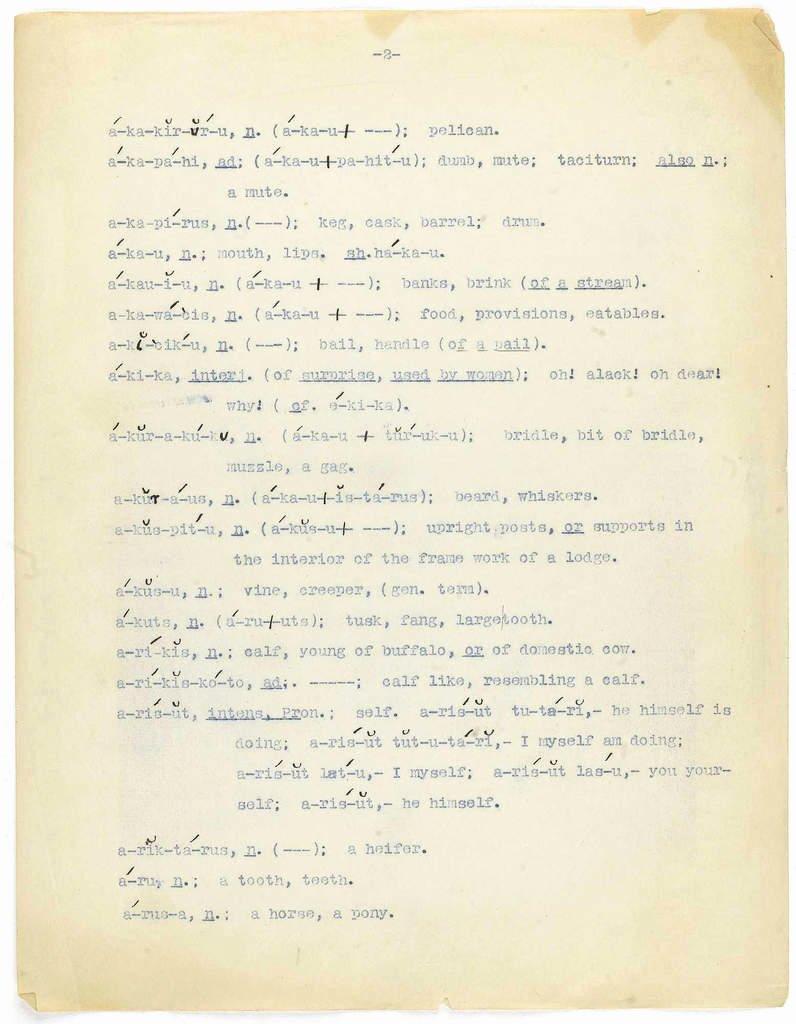 -2-
á-ka-kĭr-ŭŕ-u, n. (á-ka-u+ ---); pelican.
á-ka-pá-hi, ad; (á-ka-u+pa-hit́-u); dumb, mute; taciturn; also n.;
a mute.
a-ka-pí-rus, n.(---); keg, cask, barrel; drum.
á-ka-u, n.; mouth, lips. sh.há-ka-u.
á-kau-ĭ-u, n. (á-ka-u + ---); banks, brink (of a stream).
a-ka-wá-cis, n. (á-ka-u + ---); food, provisions, eatables.
a-kĭ-ciḱ-u, n. (---); bail, handle (of a pail).
á-ki-ka, interj. (of surprise, used by women); oh! alack! oh dear!
why! ( cf. é-ki-ka).
á-kŭr-a-kú-ku, n. (á-ka-u + tŭŕ-uk-u); bridle, bit of bridle,
muzzle, a gag.
a-kŭr-á-us, n. (á-ka-u+ĭs-tá-rus); beard, whiskers.
a-kŭs-pit́-u, n. (á-kŭs-u+ ---); upright posts, or supports in
the interior of the frame work of a lodge.
á-kŭs-u, n.; vine, creeper, (gen. term).
á-kuts, n. (á-ru+uts); tusk, fang, large|tooth.
a-rí-kĭs, n.; calf, young of buffalo, or of domestic cow.
a-rí-kĭs-kó-to, ad;. -----; calf like, resembling a calf.
a-riś-ŭt, intens, Pron.; self. a-riś-ŭt tu-tá-rĭ,- he himself is
doing; a-riś-ŭt tŭt-u-tá-rĭ,- I myself am doing;
a-riś-ŭt lat́-u,- I myself; a-riś-ŭt laś-u,- you your-
self; a-riś-ŭt,- he himself.
a-rĭk-tá-rus, n. (---); a heifer.
á-ru, n.; a tooth, teeth.
á-rus-a, n.; a horse, a pony.